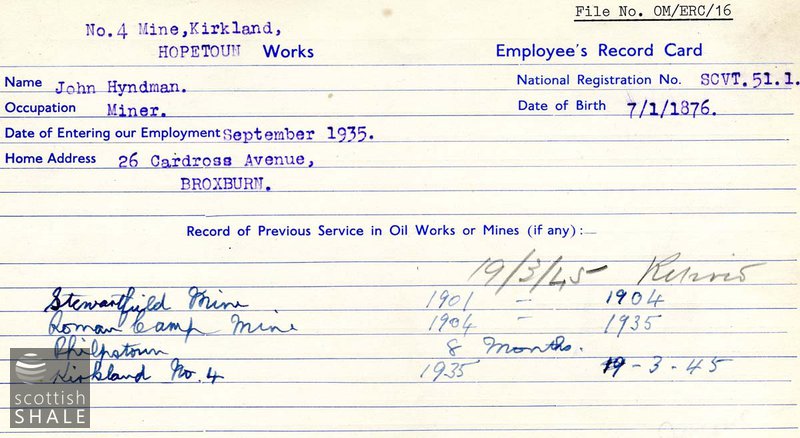 File No. OM/ERC/16
No.4 Mine,Kirkland,
HOPETOUN Works
Employee's Record Card
Name John Hyndman.
National Registration No. SCVT.51.1.
Occupation Miner.
Date of Birth 7/1/1876.
Date of Entering our Employment September 1935.
Home Address 26 Cardross Avenue,
BROXBURN.
Record of Previous Service in Oil Works or Mines (if any):—
19/3/45 Retired
Stewartfield Mine 1901 – 1904
Roman Camp Mine 1904 – 1935
Philpstoun 8 Months.
Kirkland No. 4 1935 19 - 3 - 45
scottish
SHALE